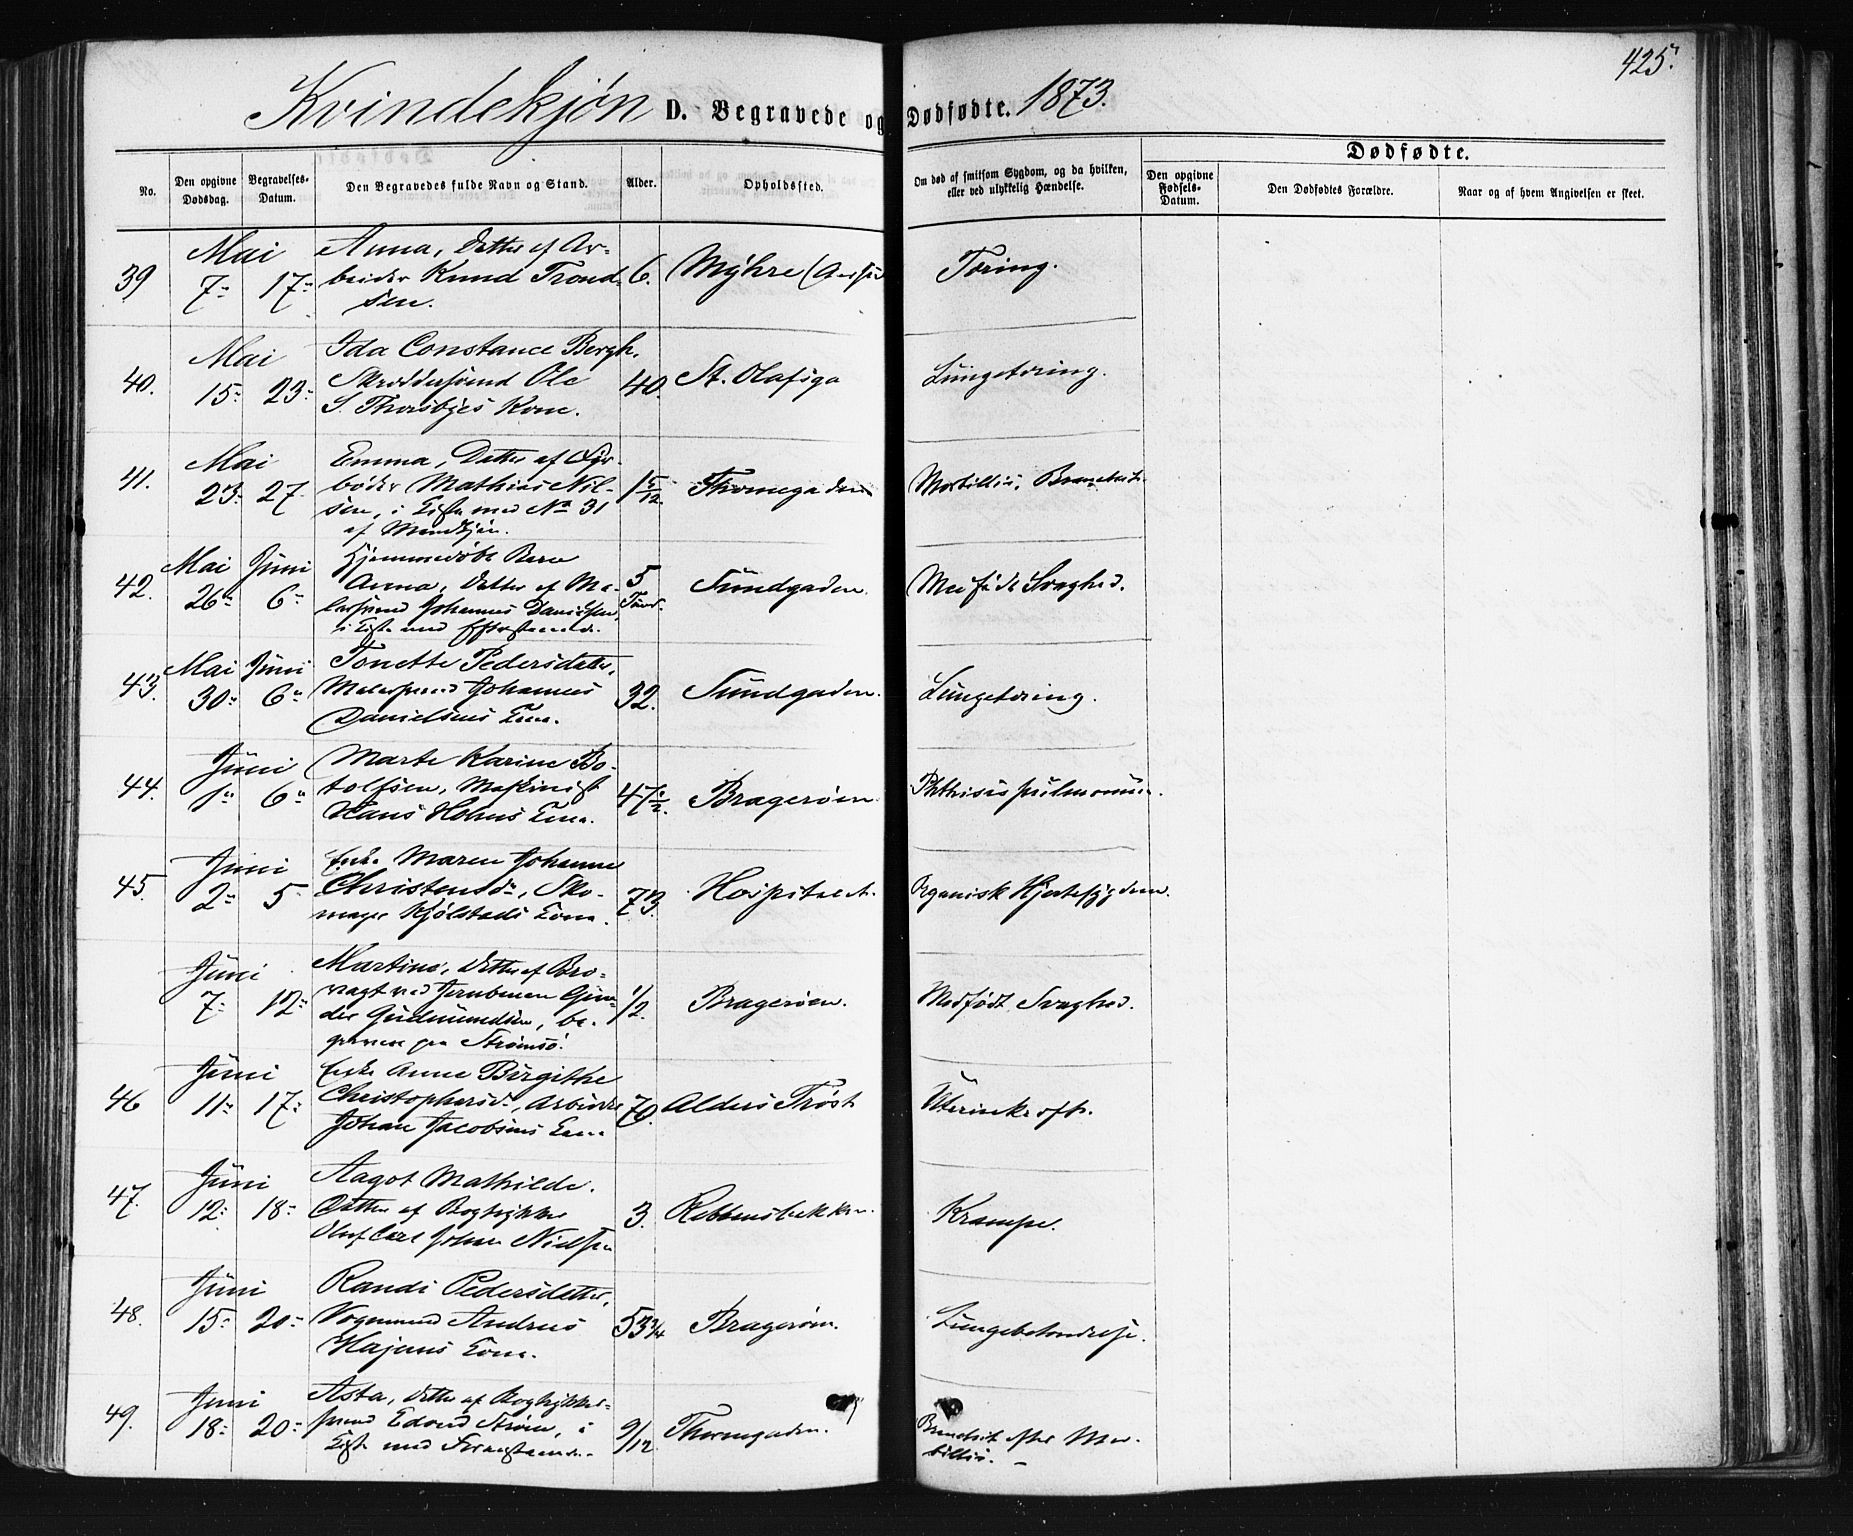 425.
Kvindekjøn D. Begravede og Dødfødte. 1873.
No.
Den opgivne Dødsdag.
Begravelses-Datum.
Den Begravedes fulde Navn og Stand.
Alder.
Opholdssted.
Om død af smitsom Sygdom, og da hvilken,
eller ved ulykkelig Hændelse.
Dødfødte.
Den opgivne Fødsels-Datum.
Den Dødfødtes Forældre.
Naar og af hvem Angivelsen er skeet.
39 Mai 7- 17-
Anna, Datter af Ar-
beider Knud Trond-
sen.
6. Myhre Tæring.
40. Mai 15- 23-
Ida Constance Bergh.
Skræddersvend Ole
S. Thorsbyes Kone.
40. St. Olafsga Lungetæring.
41. Mai 23- 27.
Emma, Datter af Fyr-
bøder Mathias Nil-
sen, i Kiste med No 31
af Mandkjøn.
1 5/12 Thornegaden Morbillis, Bronchit
42. Mai 26- Juni 6-
Hjemmedøbt Barn
Anna, Datter af Ma-
lersvend Johannes Danielsen,
i Kiste med Efterstaaende.
5 Sundgaden. Medfødt Svaghed.
43. Mai 30- Juni 6-
Tonette Pedersdatter,
Malersvend Johannes
Danielsens Kone.
32. Sundgaden. Lungetæring.
44. Juni 1- 6-
Marte Karine Bo-
tolfsen, Maskinist
Hans Holms Kone.
47 1/2. Bragerøen. Phthisis pulmonum.
45. Juni 2- 5-
Enke Maren Johanne
Christensd., Sko-
mager Kjølstads Kone.
73. Hospitalet. Organisk Hjertesygdom.
Juni 7- 12-
Martine, Datter af Bro-
vagt ved Jernbanen Gun-
der Gudmundsen, be-
graven paa Strømsø.
1/2. Bragerøen. Medfødt Svaghed.
46 Juni 11- 17-
Enke Anne Birgithe
Christophersd., Arbeider
Johan Jacobsens Kone
70. Alders Trøst Uterinkræft.
47. Juni 12- 18-
Aagot Mathilde.
Datter af Bogtrykker
Oluf Carl Johan Nielsen
3. Kobbensbækken. Krampe.
48. Juni 15- 20-
Randi Pedersdatter,
Vognmand Andreas
Hajems Kone.
53 3/4 Bragerøen. Lungebetændelse.
49. Juni 18- 20-
Asta, Datter af Bogtrykker-
svend Edvard Strøm, i
Kiste med Foranstaaende.
9/12 Thornegaden. Bronchit efter Mor-
billis.